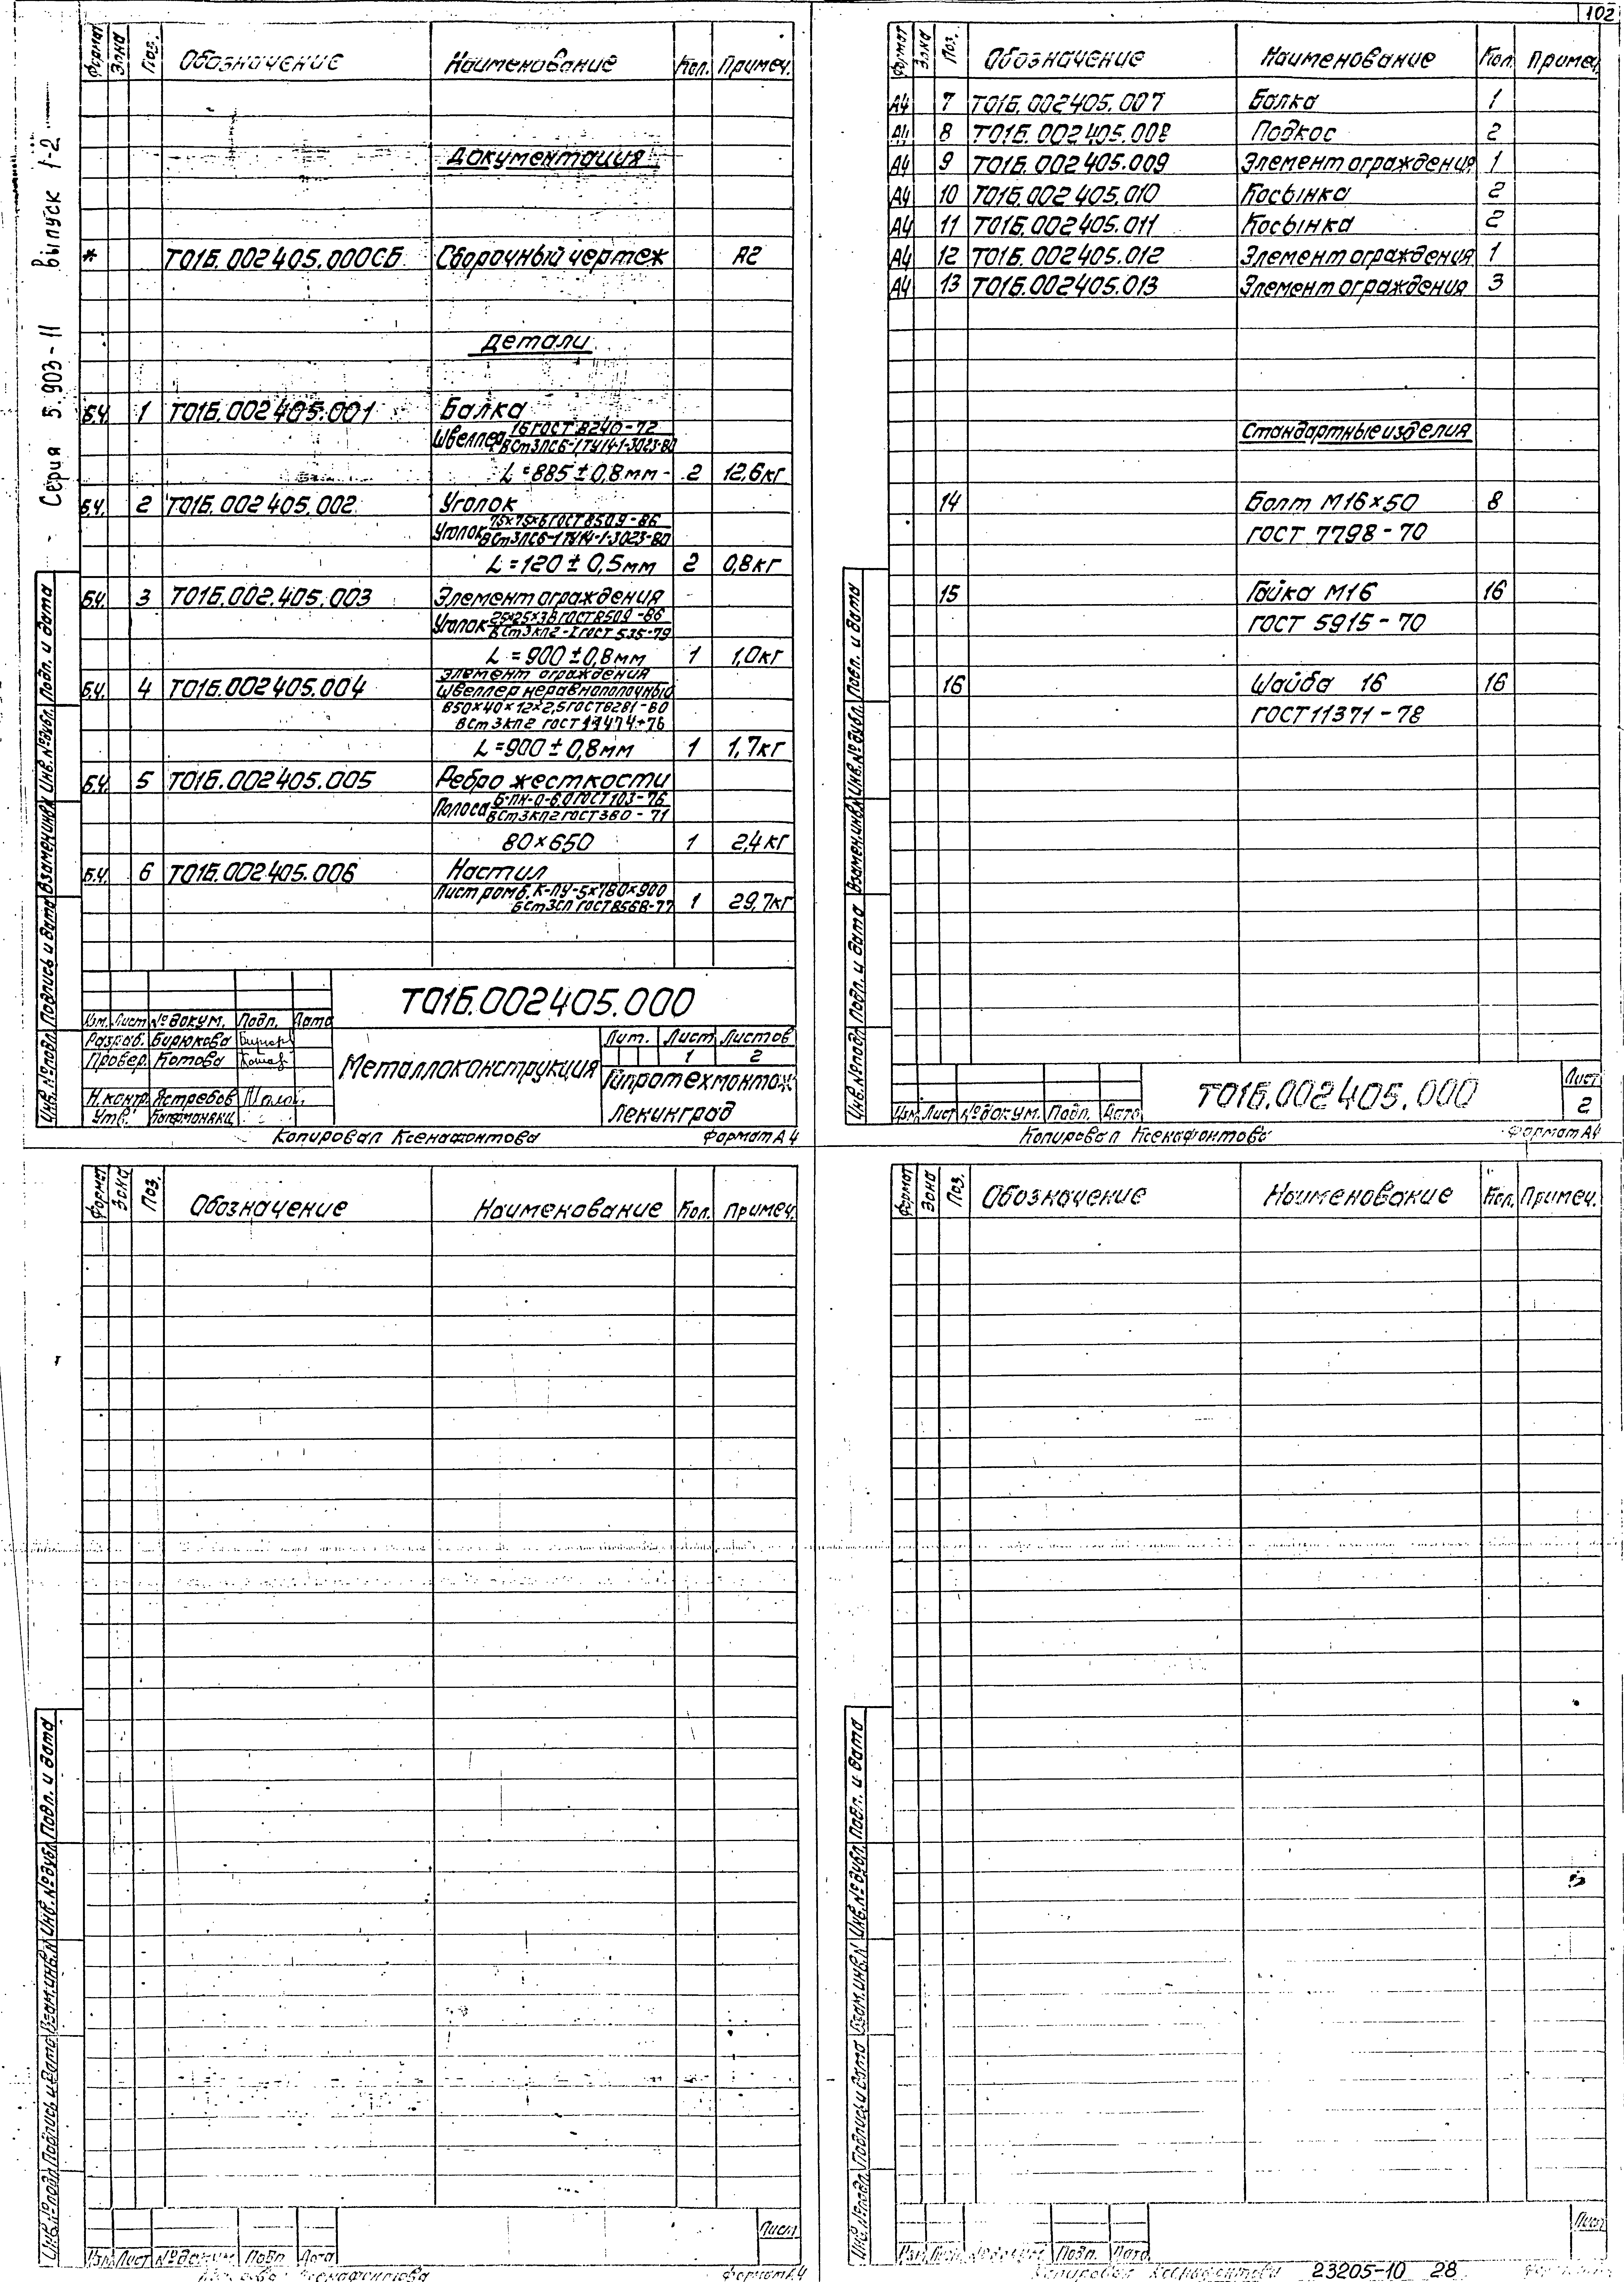 102
Серия 5.903-11 Выпуск 1-2
Формат Зона Поз. Обозначение Наименование Кол. Примеч.
Документация
* Т01Б.002405.000СБ Сборочный чертеж А2
Детали
Б.Ч. 1 Т01Б.002405.001 Балка
Швеллер 16 ГОСТ 8240-72
ВСт3ПС6-1 ТУ14-1-3023-80
L=885±0,8мм 2 12,6кг
Б.Ч. 2 Т01Б.002405.002 Уголок
Уголок 75×75×6 ГОСТ 8509-86
ВСт3ПС6-1 ТУ14-1-3023-80
L=120±0,5мм 2 0,8кг
Б.Ч. 3 Т01Б.002.405.003 Элемент ограждения
Уголок 25×25×3 В ГОСТ 8509-86
ВСт3кп2-I ГОСТ 535-79
L=900±0,8мм 1 1,0кг
Б.Ч. 4 Т01Б.002405.004 Элемент ограждения
Швеллер неравнополочный
В50×40×12×2,5 ГОСТ 8281-80
ВСт3кп2 ГОСТ 11474-76
L=900±0,8мм 1 1,7кг
Б.Ч. 5 Т01Б.002405.005 Ребро жесткости
Полоса Б-ПН-О-6,0 ГОСТ 103-76
ВСт3кп2 ГОСТ 380-71
80×650 1 2,4кг
Б.Ч. 6 Т01Б.002.405.006 Настил
Лист ромб. К-ПУ-5×780×900
БСт3сп ГОСТ 8568-77 1 29,7кг
Т01Б.002405.000
Изм. Лист № докум. Подп. Дата
Разраб. Бирюкова
Провер. Котова
Н.контр. Ястребов
Утв.
Металлоконструкция
Лит. Лист Листов
1 2
Гипротехмонтаж
Ленинград
Инв.№подл. Подпись и дата Взамен инв.№ Инв.№дубл. Подп. и дата
Копировал Ксенафонтова Формат А4
Формат Зона Поз. Обозначение Наименование Кол. Примеч.
А4 7 Т01Б.002405.007 Балка 1
А4 8 Т01Б.002405.008 Подкос 2
А4 9 Т01Б.002405.009 Элемент ограждения 1
А4 10 Т01Б.002405.010 Косынка 2
А4 11 Т01Б.002405.011 Косынка 2
А4 12 Т01Б.002405.012 Элемент ограждения 1
А4 13 Т01Б.002405.013 Элемент ограждения 3
Стандартные изделия
14 Болт М16×50 8
ГОСТ 7798-70
15 Гайка М16 16
ГОСТ 5915-70
16 Шайба 16 16
ГОСТ 11371-78
Т01Б.002405.000
Лист
2
Изм. Лист № докум. Подп. Дата
Инв.№подл. Подп. и дата Взамен.инв.№ Инв.№дубл. Подп. и дата
Копировал Ксенафонтова Формат А4
Формат Зона Поз. Обозначение Наименование Кол. Примеч.
Инв.№подл. Подпись и дата Взам.инв.№ Инв.№дубл. Подп. и дата
Изм. Лист № докум. Подп. Дата
Лист
Формат А4
Формат Зона Поз. Обозначение Наименование Кол. Примеч.
Инв.№подл. Подпись и дата Взам.инв.№ Инв.№дубл. Подп. и дата
Изм. Лист № докум. Подп. Дата
Лист
Копировал Ксенафонтова 23205-10 28